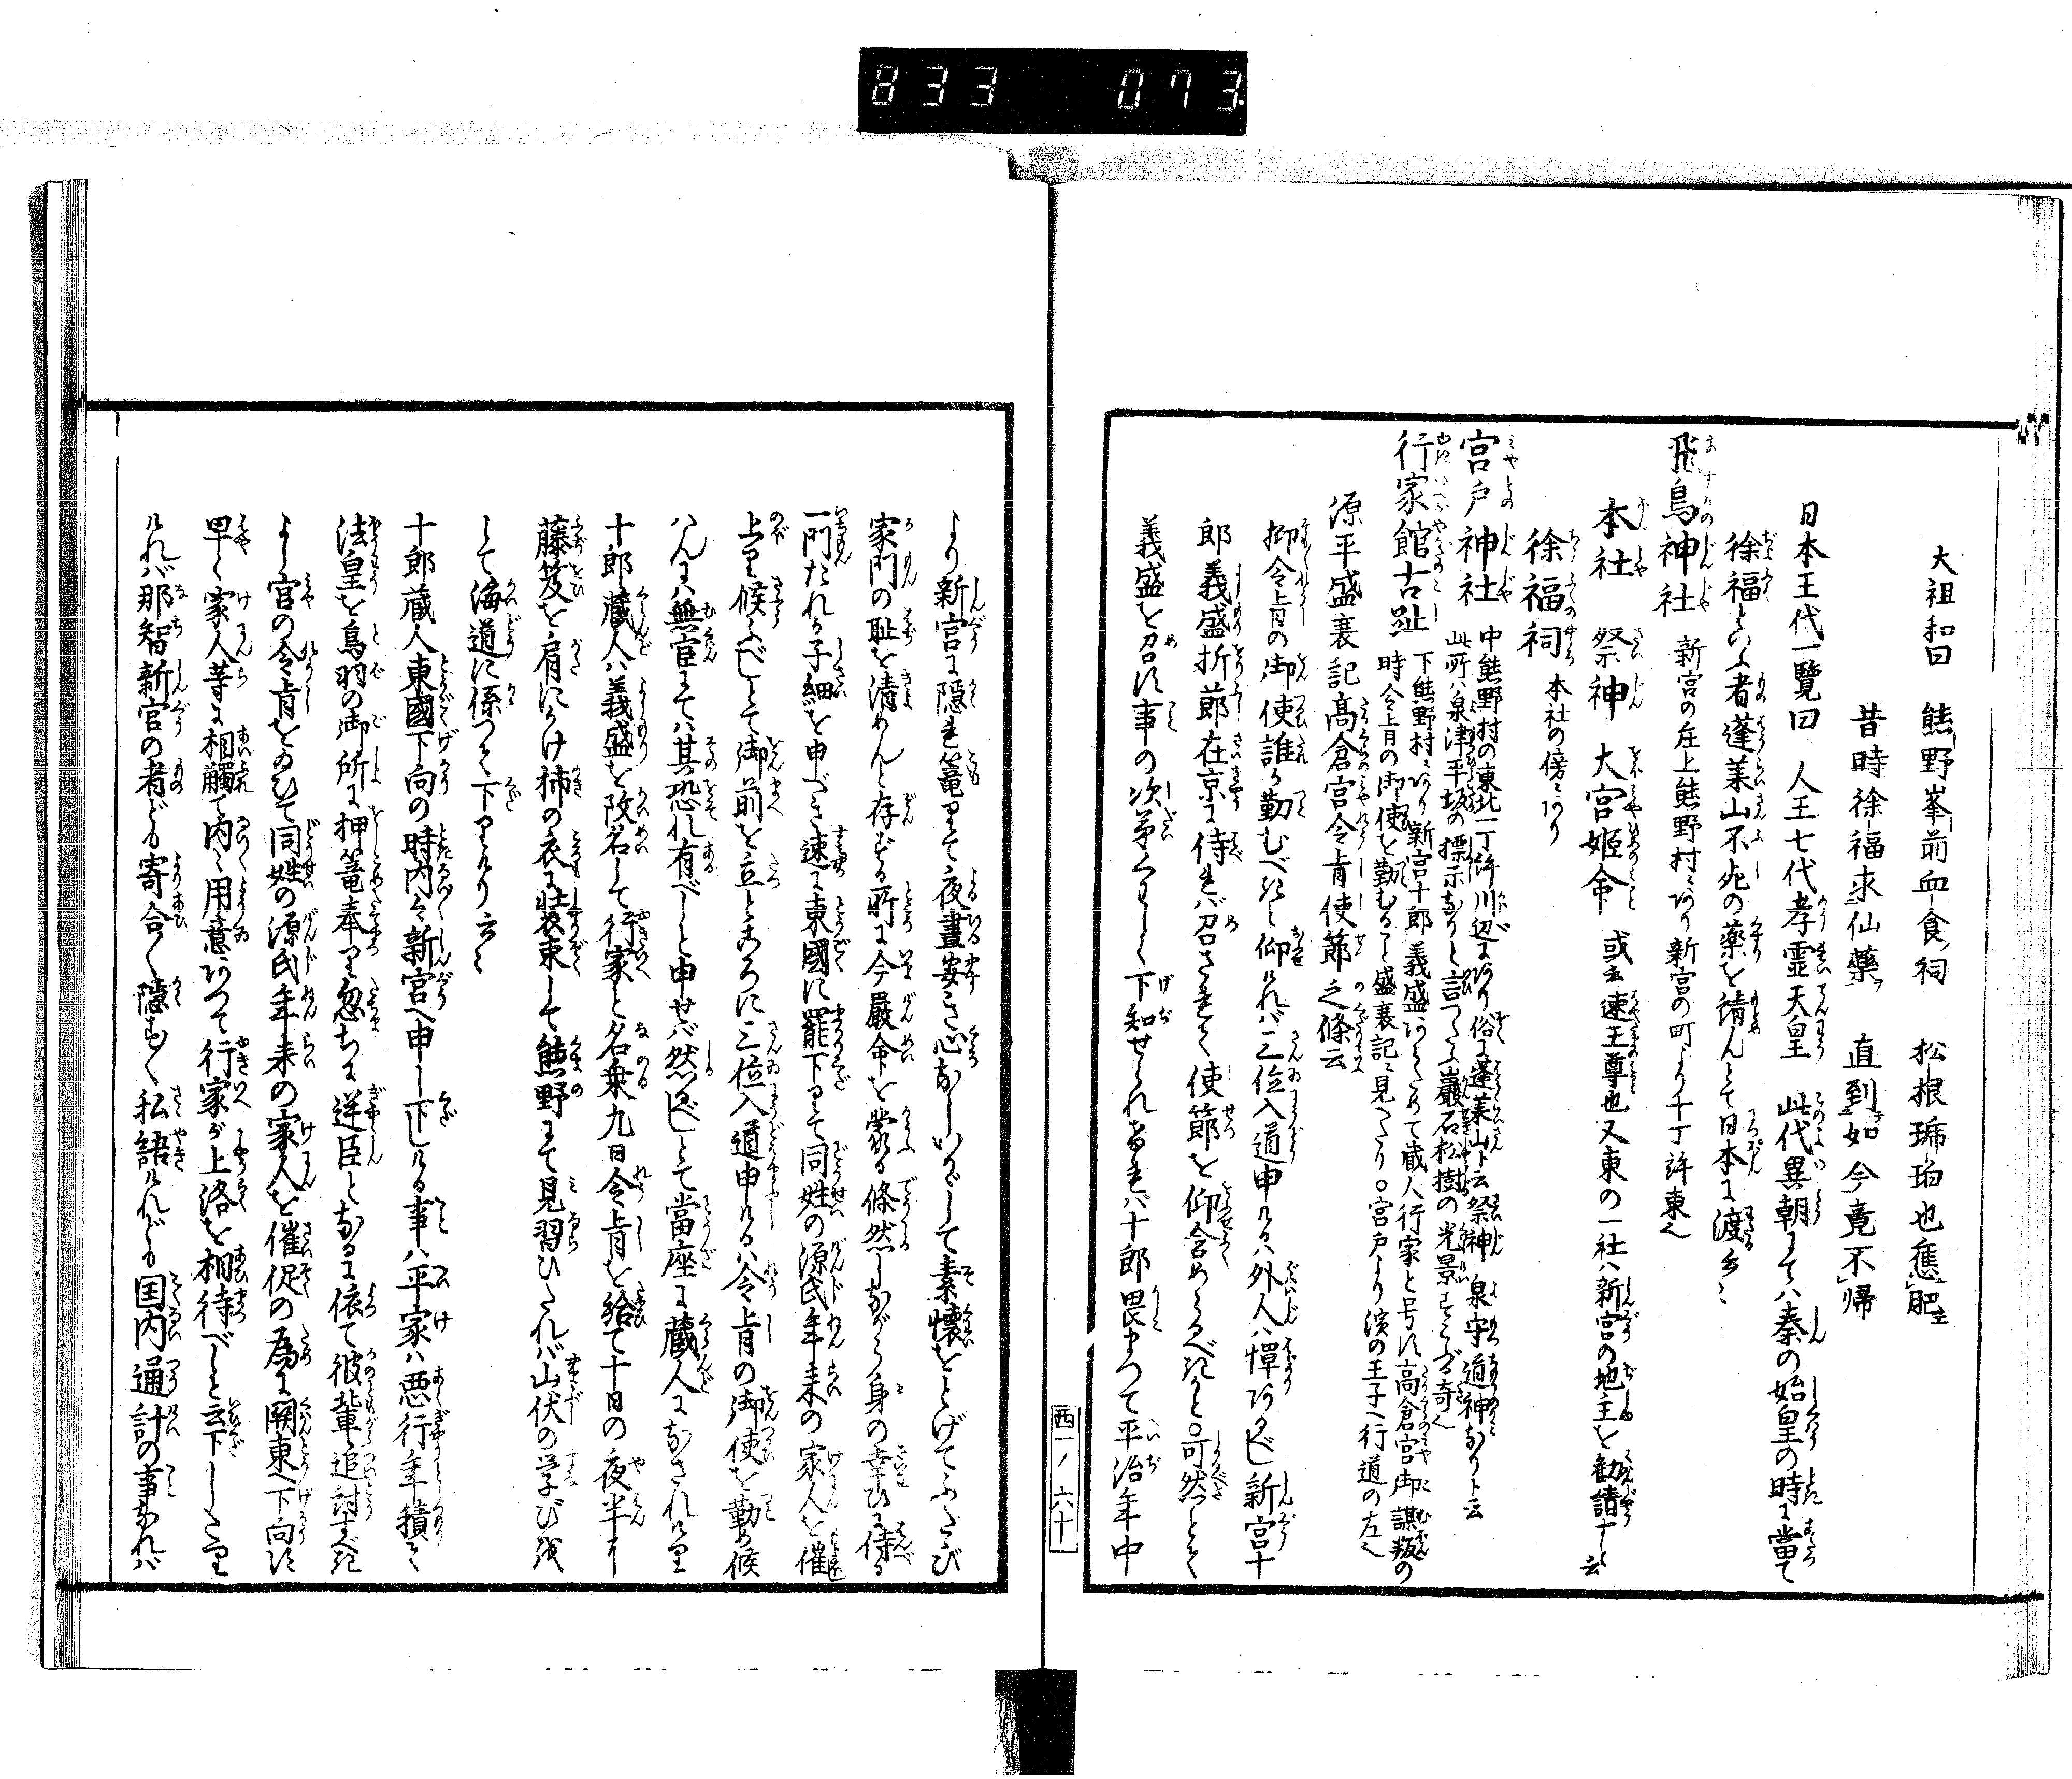 833 073
大祖和曰 熊野峯前血食ノ祠 松根琥珀也應肥
昔時徐福求仙藥ヲ 直到如今竟不帰
日本王代一覽曰 人王七代孝霊天皇 此代異朝にてハ秦の始皇の時に當て
徐福といふ者蓬莱山不死の薬を請んとて日本に渡る云々
飛鳥神社 新宮の庄上熊野村ニあり新宮の町より千丁許東也
本社 祭神 大宮姫命 或云速玉尊也又東の一社ハ新宮の地主を勧請すと云
徐福祠 本社の傍ニあり
宮戸神社 中熊野村の東北一丁許川辺にあり俗に蓬莱山ト云祭神泉守道神なりト云
此所ハ泉津平坂の標示なりと言つたふ巌石松樹の光景すこぶる奇也
行家館古趾 下熊野村ニあり新宮十郎義盛あらためて蔵人行家と号す高倉宮御謀叛の
時令旨の御使を勤むること盛衰記ニ見へたり○宮戸より濱の王子へ行道の左也
源平盛衰記高倉宮令旨使節之條云
抑令旨の御使誰か勤むべきと仰ければ三位入道申けるハ外人ハ憚あるべし新宮十
郎義盛折節在京に侍れバ召されて使節を仰含めらるべきかと○可然とて
義盛を召す事の次第くわしく下知せられけれバ十郎畏まつて平治年中
西一ノ六十
より新宮に隠れ篭りて夜晝安き心なしいかゞして素懐をとげてふたゝび
家門の耻を清めんと存ずる所に今嚴命を蒙る條然しながら身の幸ひに侍る
一門たれか子細を申べき速に東國に罷下りて同姓の源氏年来の家人を催
上り候ふべしとて御前を立ところに三位入道申けるハ令旨の御使を勤め候
はんにハ無官にてハ其恐れ有べしと申せバ然べしとて當座に蔵人になされけり
十郎蔵人ハ義盛を改名して行家と名乗九日令旨を給て十日の夜半に
藤笈を肩にかけ柿の衣に装束して熊野にて見習ひたれバ山伏の学び我
して海道に係つて下りけり云々
十郎蔵人東國下向の時内々新宮へ申し下しける事ハ平家ハ悪行年積て
法皇を鳥羽の御所に押篭奉り忽ちに逆臣となるに依て彼輩追討すべき
よし宮の令旨を給ひて同姓の源氏年来の家人を催促の為に関東へ下向す
早く家人等に相觸て内々用意あつて行家が上洛を相待べしと云下したり
けれバ那智新宮の者ども寄合く隠ゝく私語けれども国内通計の事なれバ